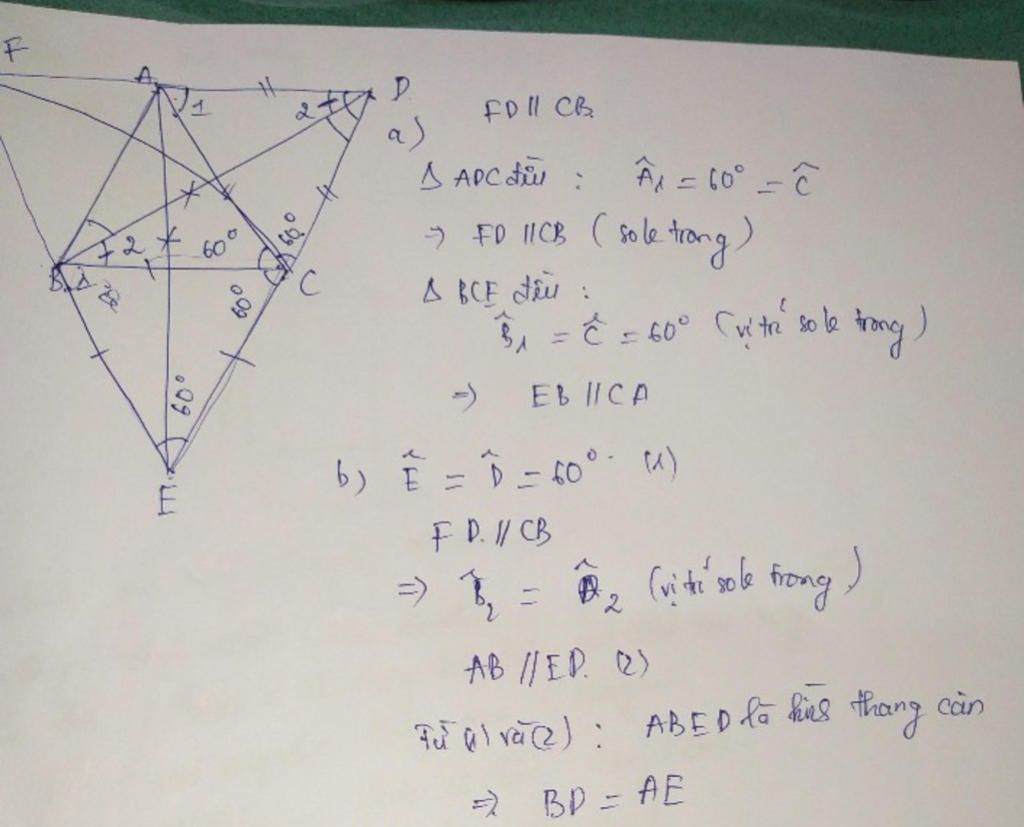 F
A
1
2
D
B
1
2
60°
60°
60°
60°
C
E
a) FD // CB
Δ ADC đều : Â₁ = 60° = Ĉ
→ FD // CB ( so le trong )
Δ BCE đều :
B̂₁ = Ĉ = 60° (vị trí so le trong )
=> EB // CA
b) Ê = D̂ = 60° (1)
FD // CB
=> B̂₂ = D̂₂ (vị trí so le trong )
AB // ED. (2)
Từ (1) và (2) : ABED là hình thang cân
=> BD = AE